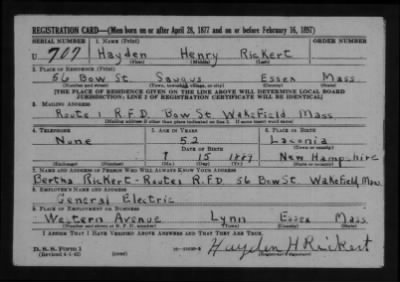 REGISTRATION CARD—(Men born on or after April 28, 1877 and on or before February 16, 1897)
SERIAL NUMBER 1. NAME (Print) ORDER NUMBER
U 707 Hayden Henry Rickert
(First) (Middle) (Last)
2. PLACE OF RESIDENCE (Print)
56 Bow St. Saugus Essex Mass
(Number and street) (Town, township, village, or city) (County) (State)
[THE PLACE OF RESIDENCE GIVEN ON THE LINE ABOVE WILL DETERMINE LOCAL BOARD
JURISDICTION; LINE 2 OF REGISTRATION CERTIFICATE WILL BE IDENTICAL]
3. MAILING ADDRESS
Route 1 R.F.D. Bow St Wakefield Mass
[Mailing address if other than place indicated on line 2. If same insert word same]
4. TELEPHONE 5. AGE IN YEARS 6. PLACE OF BIRTH
None 52 Laconia
DATE OF BIRTH (Town or county)
15 1889 New Hampshire
(Exchange) (Number) (Mo.) (Day) (Yr.) (State or country)
7. NAME AND ADDRESS OF PERSON WHO WILL ALWAYS KNOW YOUR ADDRESS
Bertha Rickert - Route 1 R.F.D. 56 Bow St. Wakefield, Mass
8. EMPLOYER'S NAME AND ADDRESS
General Electric
9. PLACE OF EMPLOYMENT OR BUSINESS
Western Avenue Lynn Essex Mass
(Number and street or R. F. D. number) (Town) (County) (State)
I AFFIRM THAT I HAVE VERIFIED ABOVE ANSWERS AND THAT THEY ARE TRUE.
D. S. S. FORM 1
(Revised 4-1-42) (over) Hayden H Rickert